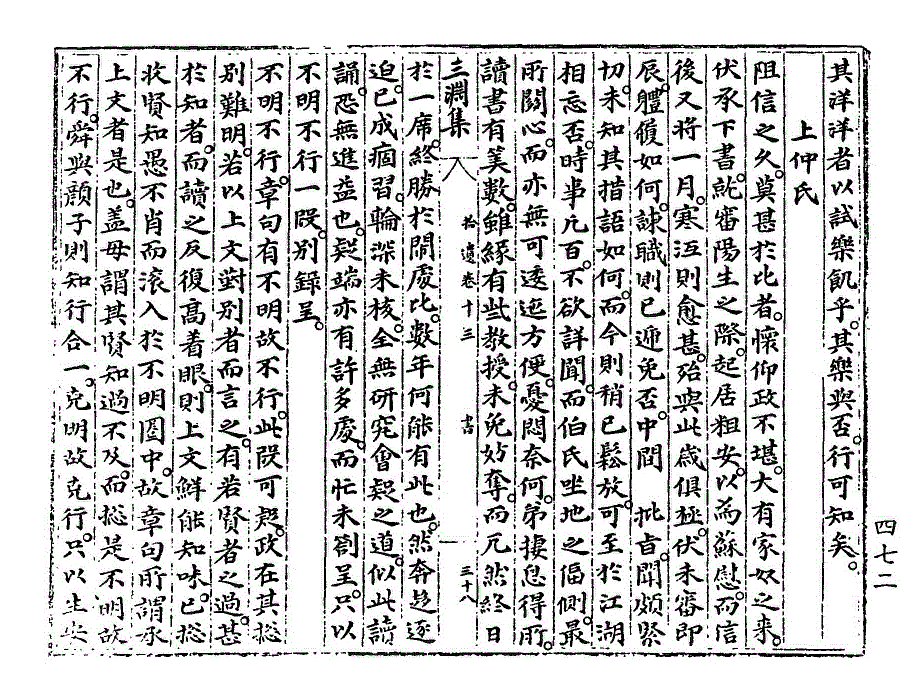 其洋洋者以試樂飢乎。其樂與否。行可知矣。
上仲氏
阻信之久。莫甚於比者。懷仰政不堪。大有家奴之来。
伏承下書。就審陽生之際。起居粗安。以為蘇慰。而信
後又將一月。寒沍則愈甚。殆與此歲俱極。伏未審即
辰。體履如何。諫職則已遞免否。中間 批旨。聞頗緊
切。未知其措語如何。而今則稍已鬆放。可至於江湖
相忘否。時事凡百。不欲詳聞。而伯氏坐地之偪側。最
所關心。而亦無可透迤方便。憂悶奈何。弟捿息得所。
讀書有筭數。雖緣有些教授。未免妨奪。而兀然終日
三淵集
拾遺卷十三 書
三十八
於一席。終勝於閙處。比數年何能有此也。然奔趍逐
迫。已成痼習。輪深未核。全無研究會疑之道。似此讀
誦。恐無進益也。疑端亦有許多處。而忙未劄呈。只以
不明不行一段。別錄呈。
不明不行。章句有不明故不行。此段可疑。政在其揔
別難明。若以上文對別者而言之。有若賢者之過甚
於知者。而讀之反復高着眼。則上文鮮能知味。已揔
收賢知愚不肖而滚入於不明圈中。故章句所謂承
上文者是也。盖毋謂其賢知過不及。而揔是不明故
不行。舜與顔子則知行合一。克明故克行。只以生安
四七二